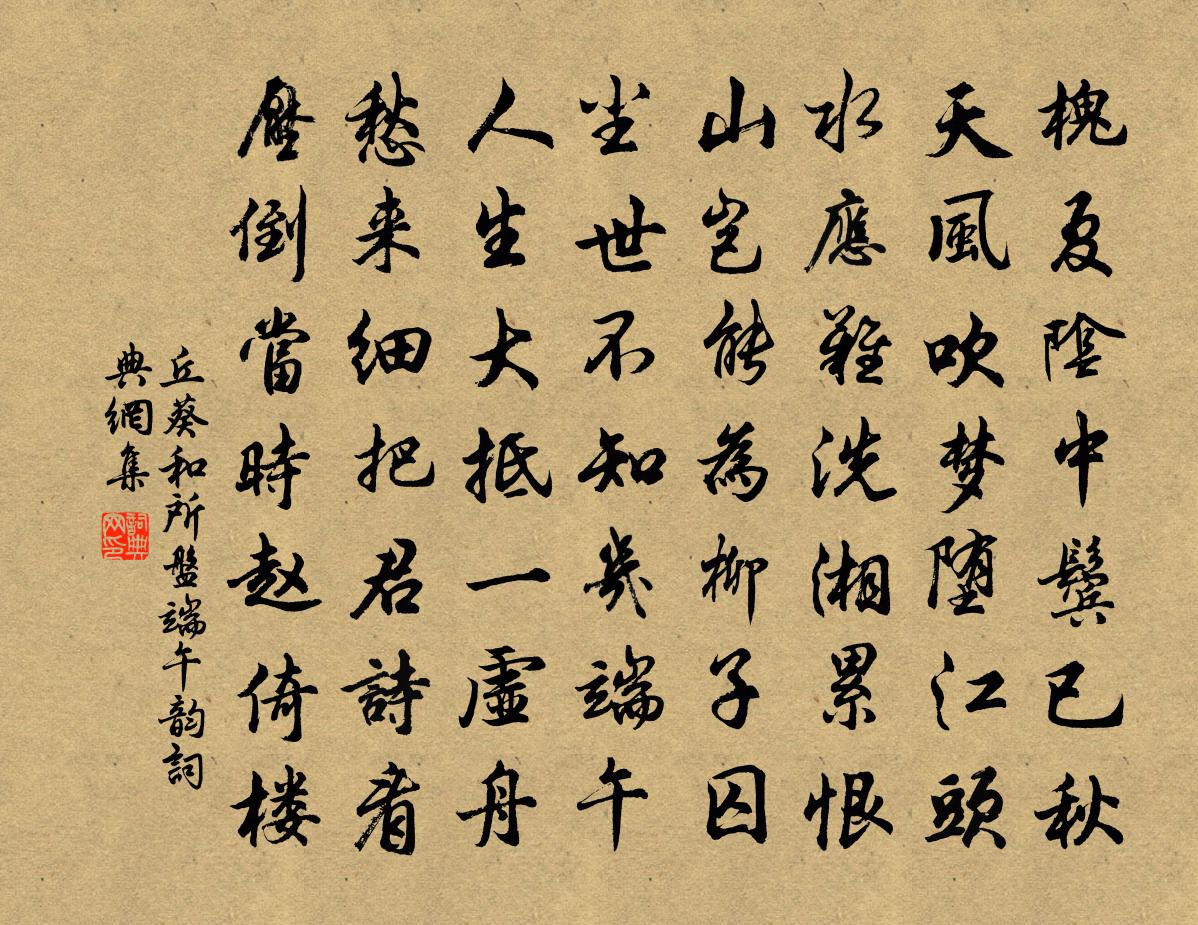 槐夏陰中鬓已秋
天風吹梦堕江頭
水應難洗湘累恨
山岂能為柳子囚
尘世不知幾端午
人生大抵一虛舟
愁来细把君詩看
壓倒當時赵倚楼
丘葵和所盤端午韵詞
典網集
詞典
网印